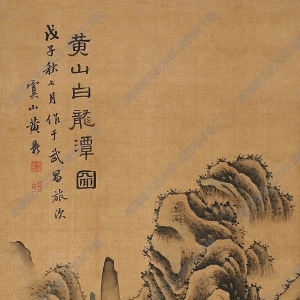 黄山白龍潭圖
戊子秋七月作于武昌旅次
虞山黄鼎